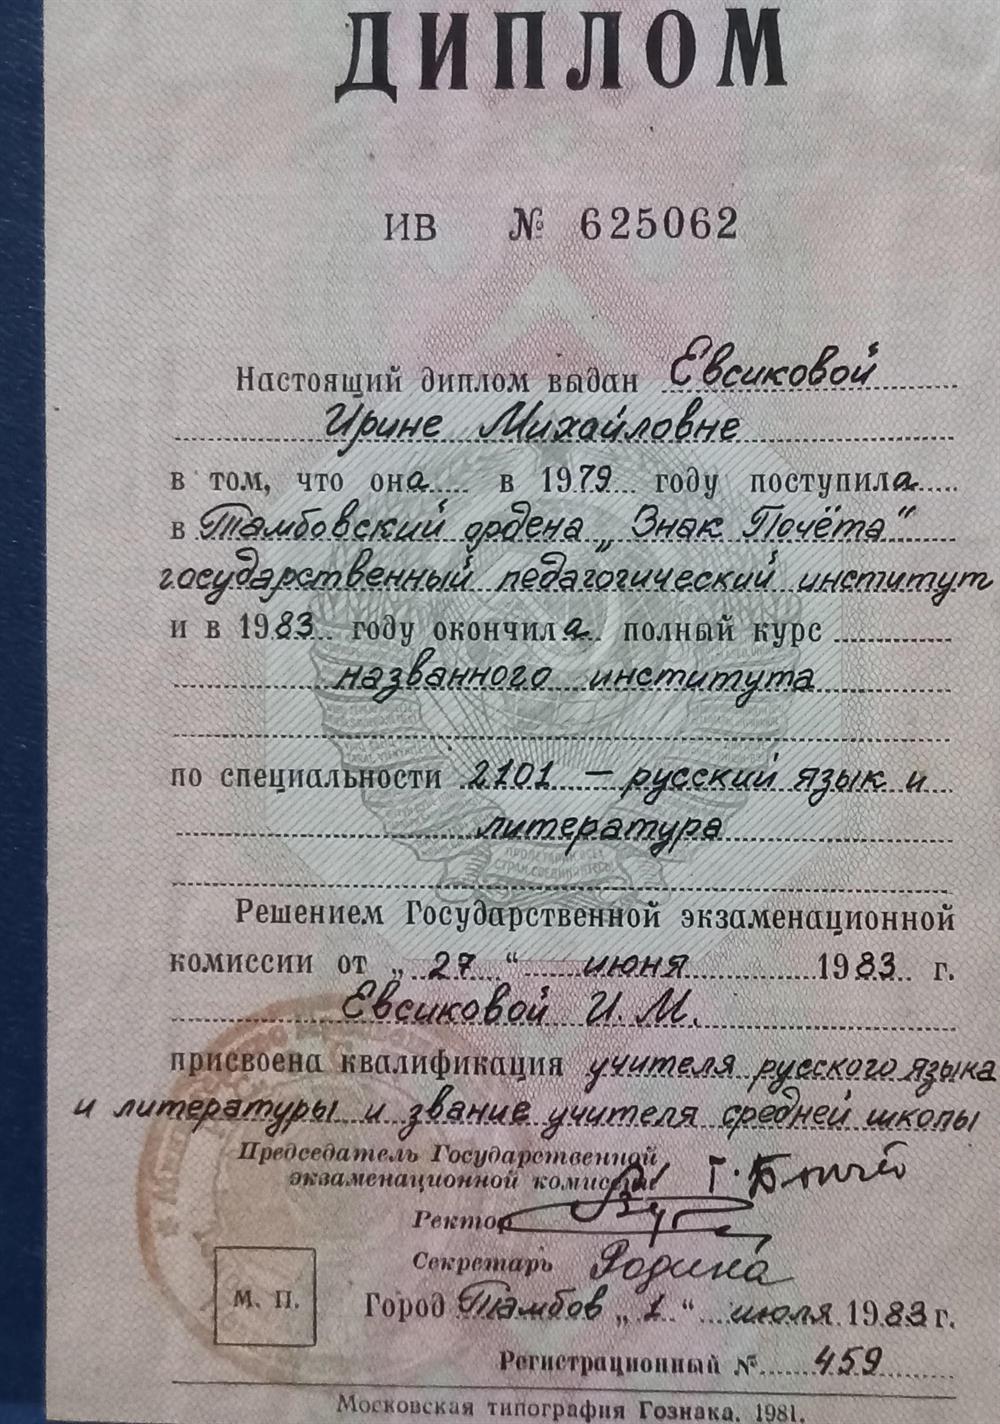 ДИПЛОМ
ИВ № 625062
Настоящий диплом выдан Евсиковой
Ирине Михайловне
в том, что она в 1979 году поступила
в Тамбовский ордена „Знак Почёта“
государственный педагогический институт
и в 1983 году окончила полный курс
названного института
по специальности 2101 — русский язык и
литература
Решением Государственной экзаменационной
комиссии от „27“ июня 1983 г.
Евсиковой И. М.
присвоена квалификация учителя русского языка
и литературы и звание учителя средней школы
Председатель Государственной
экзаменационной комиссии
Ректор
Секретарь Родина
М. П.
Город Тамбов „1“ июля 1983 г.
Регистрационный № 459
Московская типография Гознака. 1981.